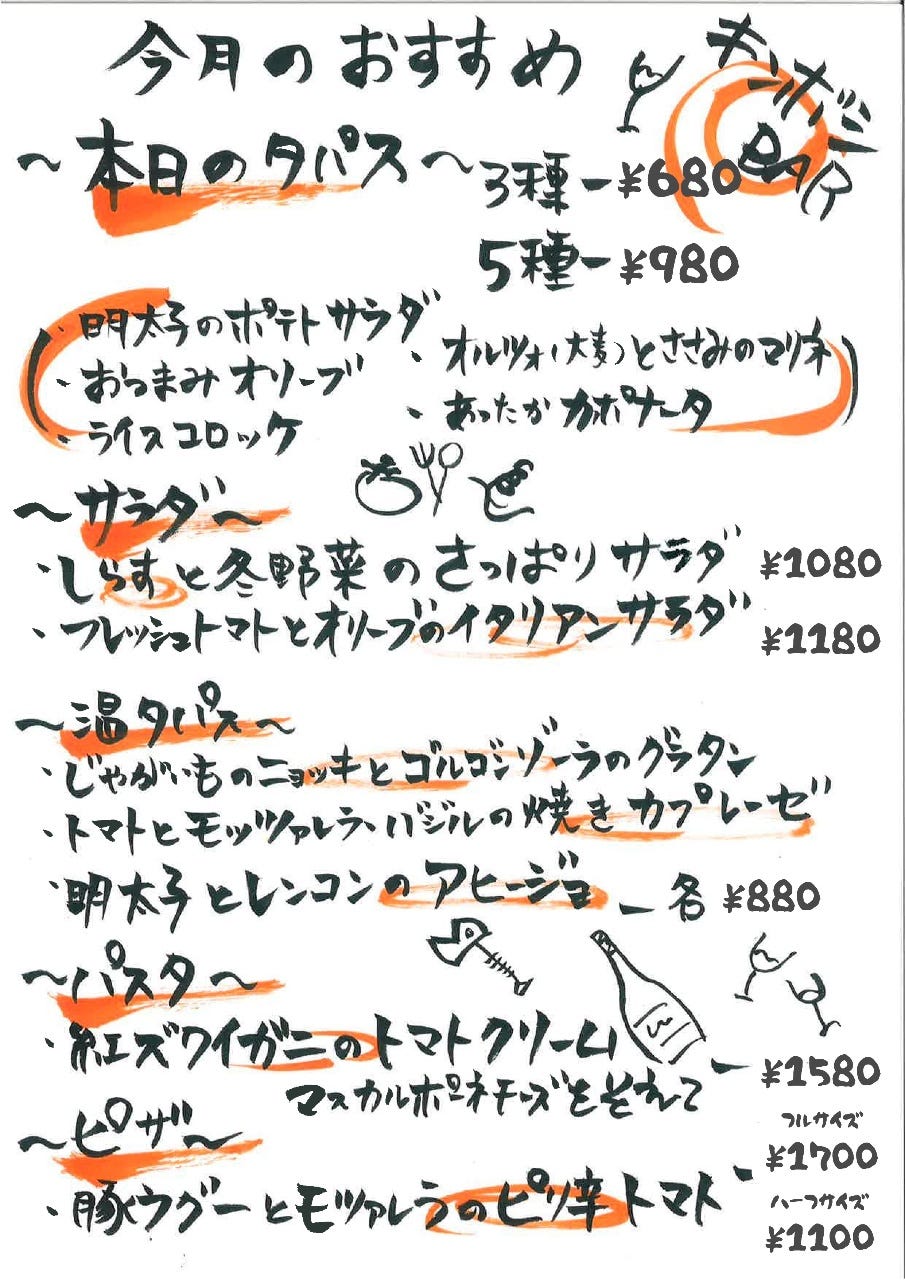 今月のおすすめ
カンボシ BAR
〜本日のタパス〜
3種ー¥680
5種ー¥980
・明太子のポテトサラダ
・おつまみオリーブ
・ライスコロッケ
・オルヅォ(大麦)とささみのマリネ
・あったかカポナータ
〜サラダ〜
・しらすと冬野菜のさっぱりサラダ ¥1080
・フレッシュトマトとオリーブのイタリアンサラダ ¥1180
〜温タパス〜
・じゃがいものニョッキとゴルゴンゾーラのグラタン
・トマトとモッツァレラ、バジルの焼きカプレーゼ
・明太子とレンコンのアヒージョ ー各 ¥880
〜パスタ〜
・紅ズワイガニのトマトクリーム
マスカルポーネチーズをそえて ー ¥1580
〜ピザ〜
フルサイズ
¥1700
・豚ウグーとモツァレラのピリ辛トマト
ハーフサイズ
¥1100